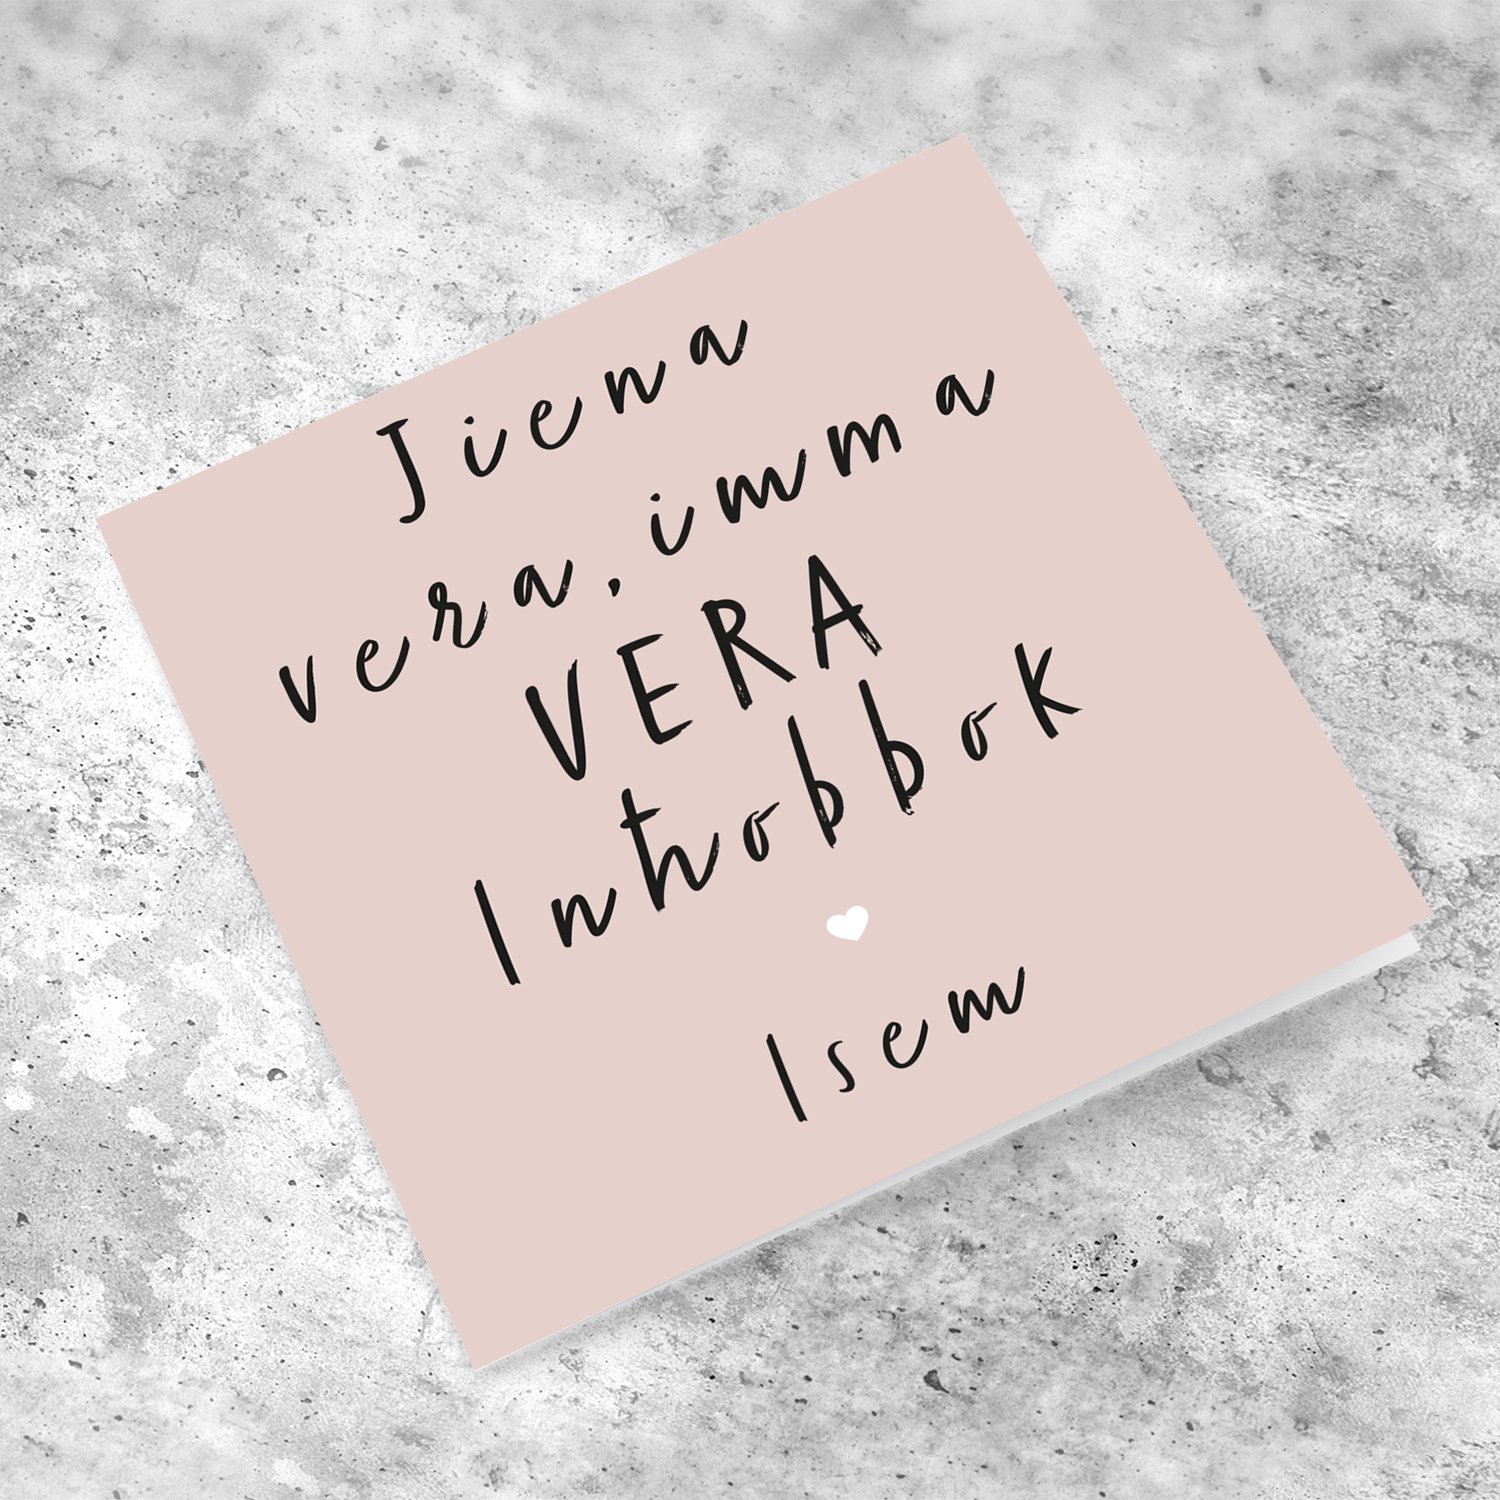 Jiena
vera, imma
VERA
Inħobbok
Isem